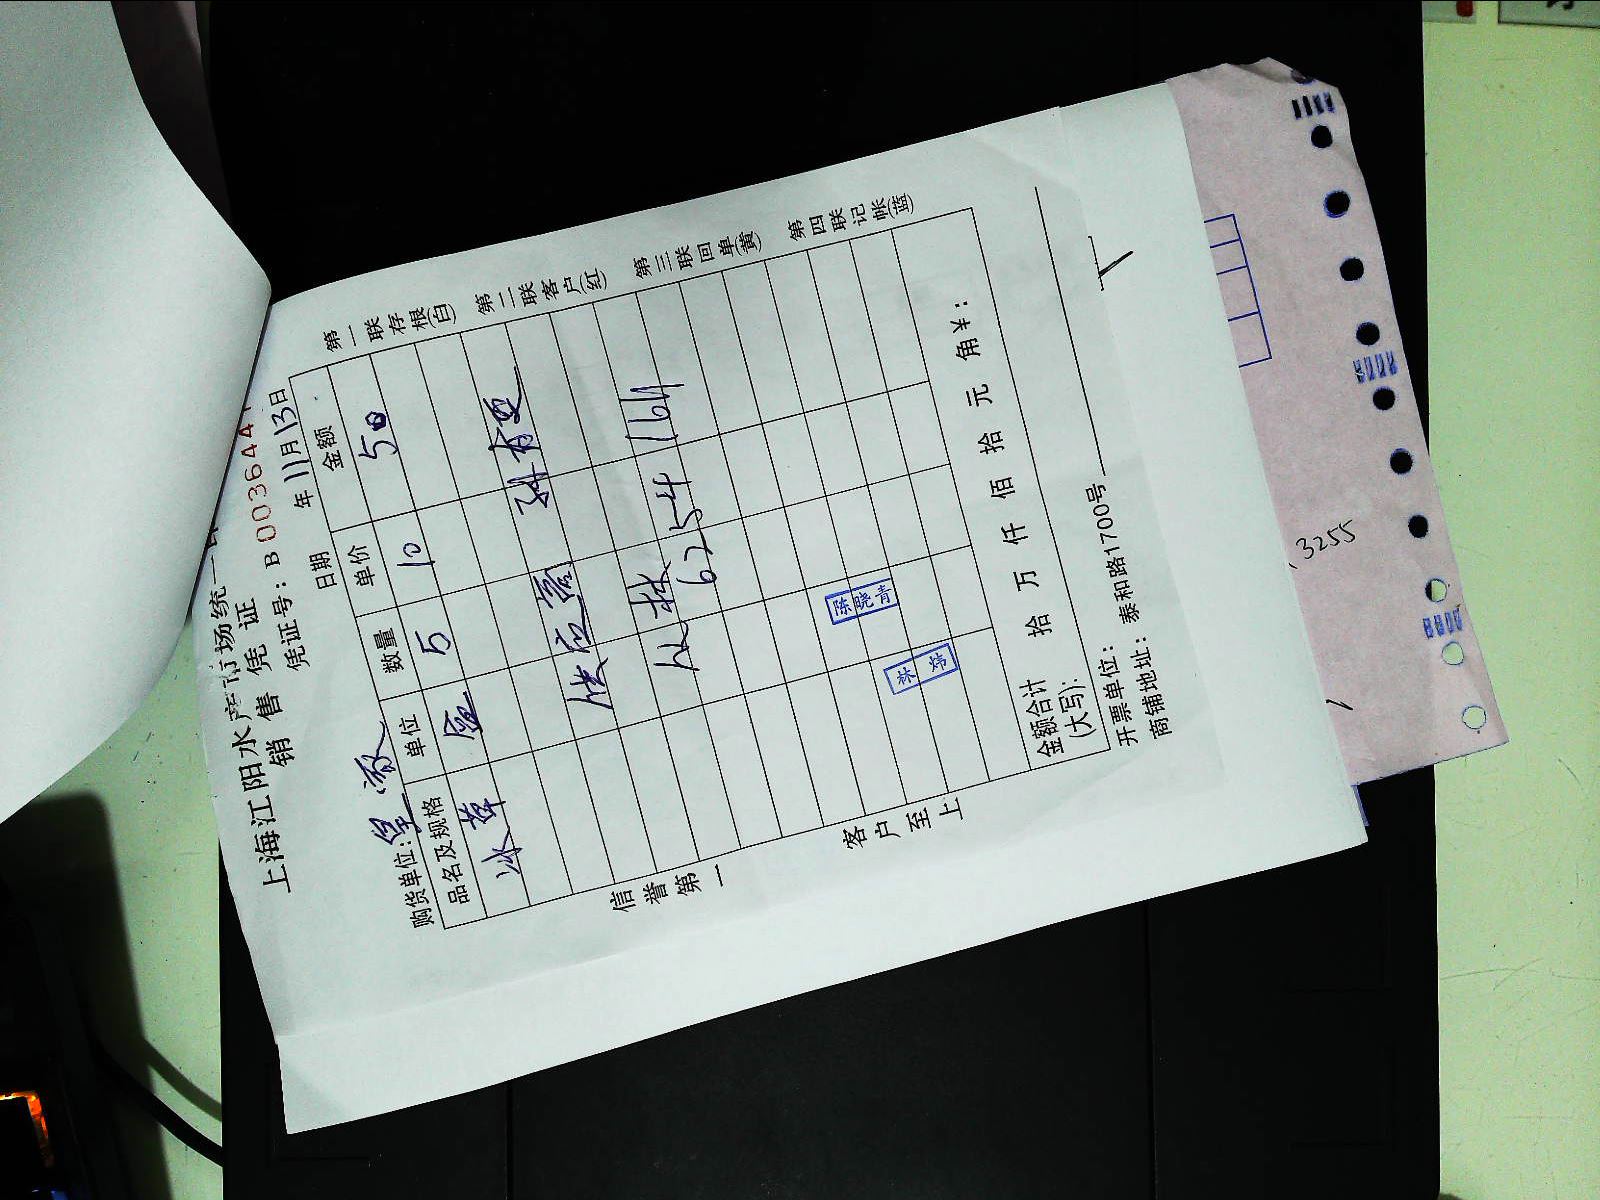 上海江阳水产市场统一
销售凭证
凭证号：B 003644
日期 年11月13日
购货单位：
品名及规格 单位 数量 单价 金额
冰草 盒 5 10 50
供应商 孙有更
6254 1611
陈晓青
林炜
金额合计(大写)： 拾 万 仟 佰 拾 元 角¥：
开票单位：
商铺地址：泰和路1700号
第一联存根(白)
第二联客户(红)
第三联回单(黄)
第四联记帐(蓝)
信誉第一
客户至上
3255